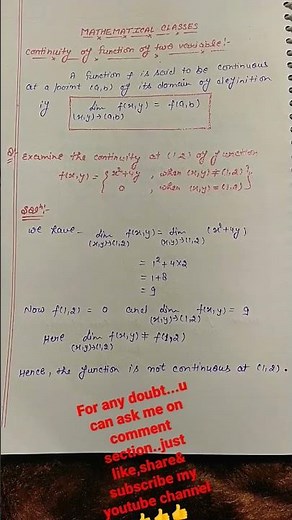 MATHEMATICAL CLASSES
continuity of function of two variable:-
A function f is said to be continuous
at a point (a,b) of its domain of definition
if lim f(x,y) = f(a,b)
(x,y)→(a,b)
Q: Examine the continuity at (1,2) of function
f(x,y) = { x²+4y , when (x,y) ≠ (1,2)
0 , when (x,y) = (1,2) }
Solⁿ:-
We have- lim f(x,y) = lim (x²+4y)
(x,y)→(1,2) (x,y)→(1,2)
= 1²+4×2
= 1+8
= 9
Now f(1,2) = 0 and lim f(x,y) = 9
(x,y)→(1,2)
Here lim f(x,y) ≠ f(1,2)
(x,y)→(1,2)
Hence, the function is not continuous at (1,2).
For any doubt...u
can ask me on
comment
section..just
like,share&
subscribe my
youtube channel
👍👍👍